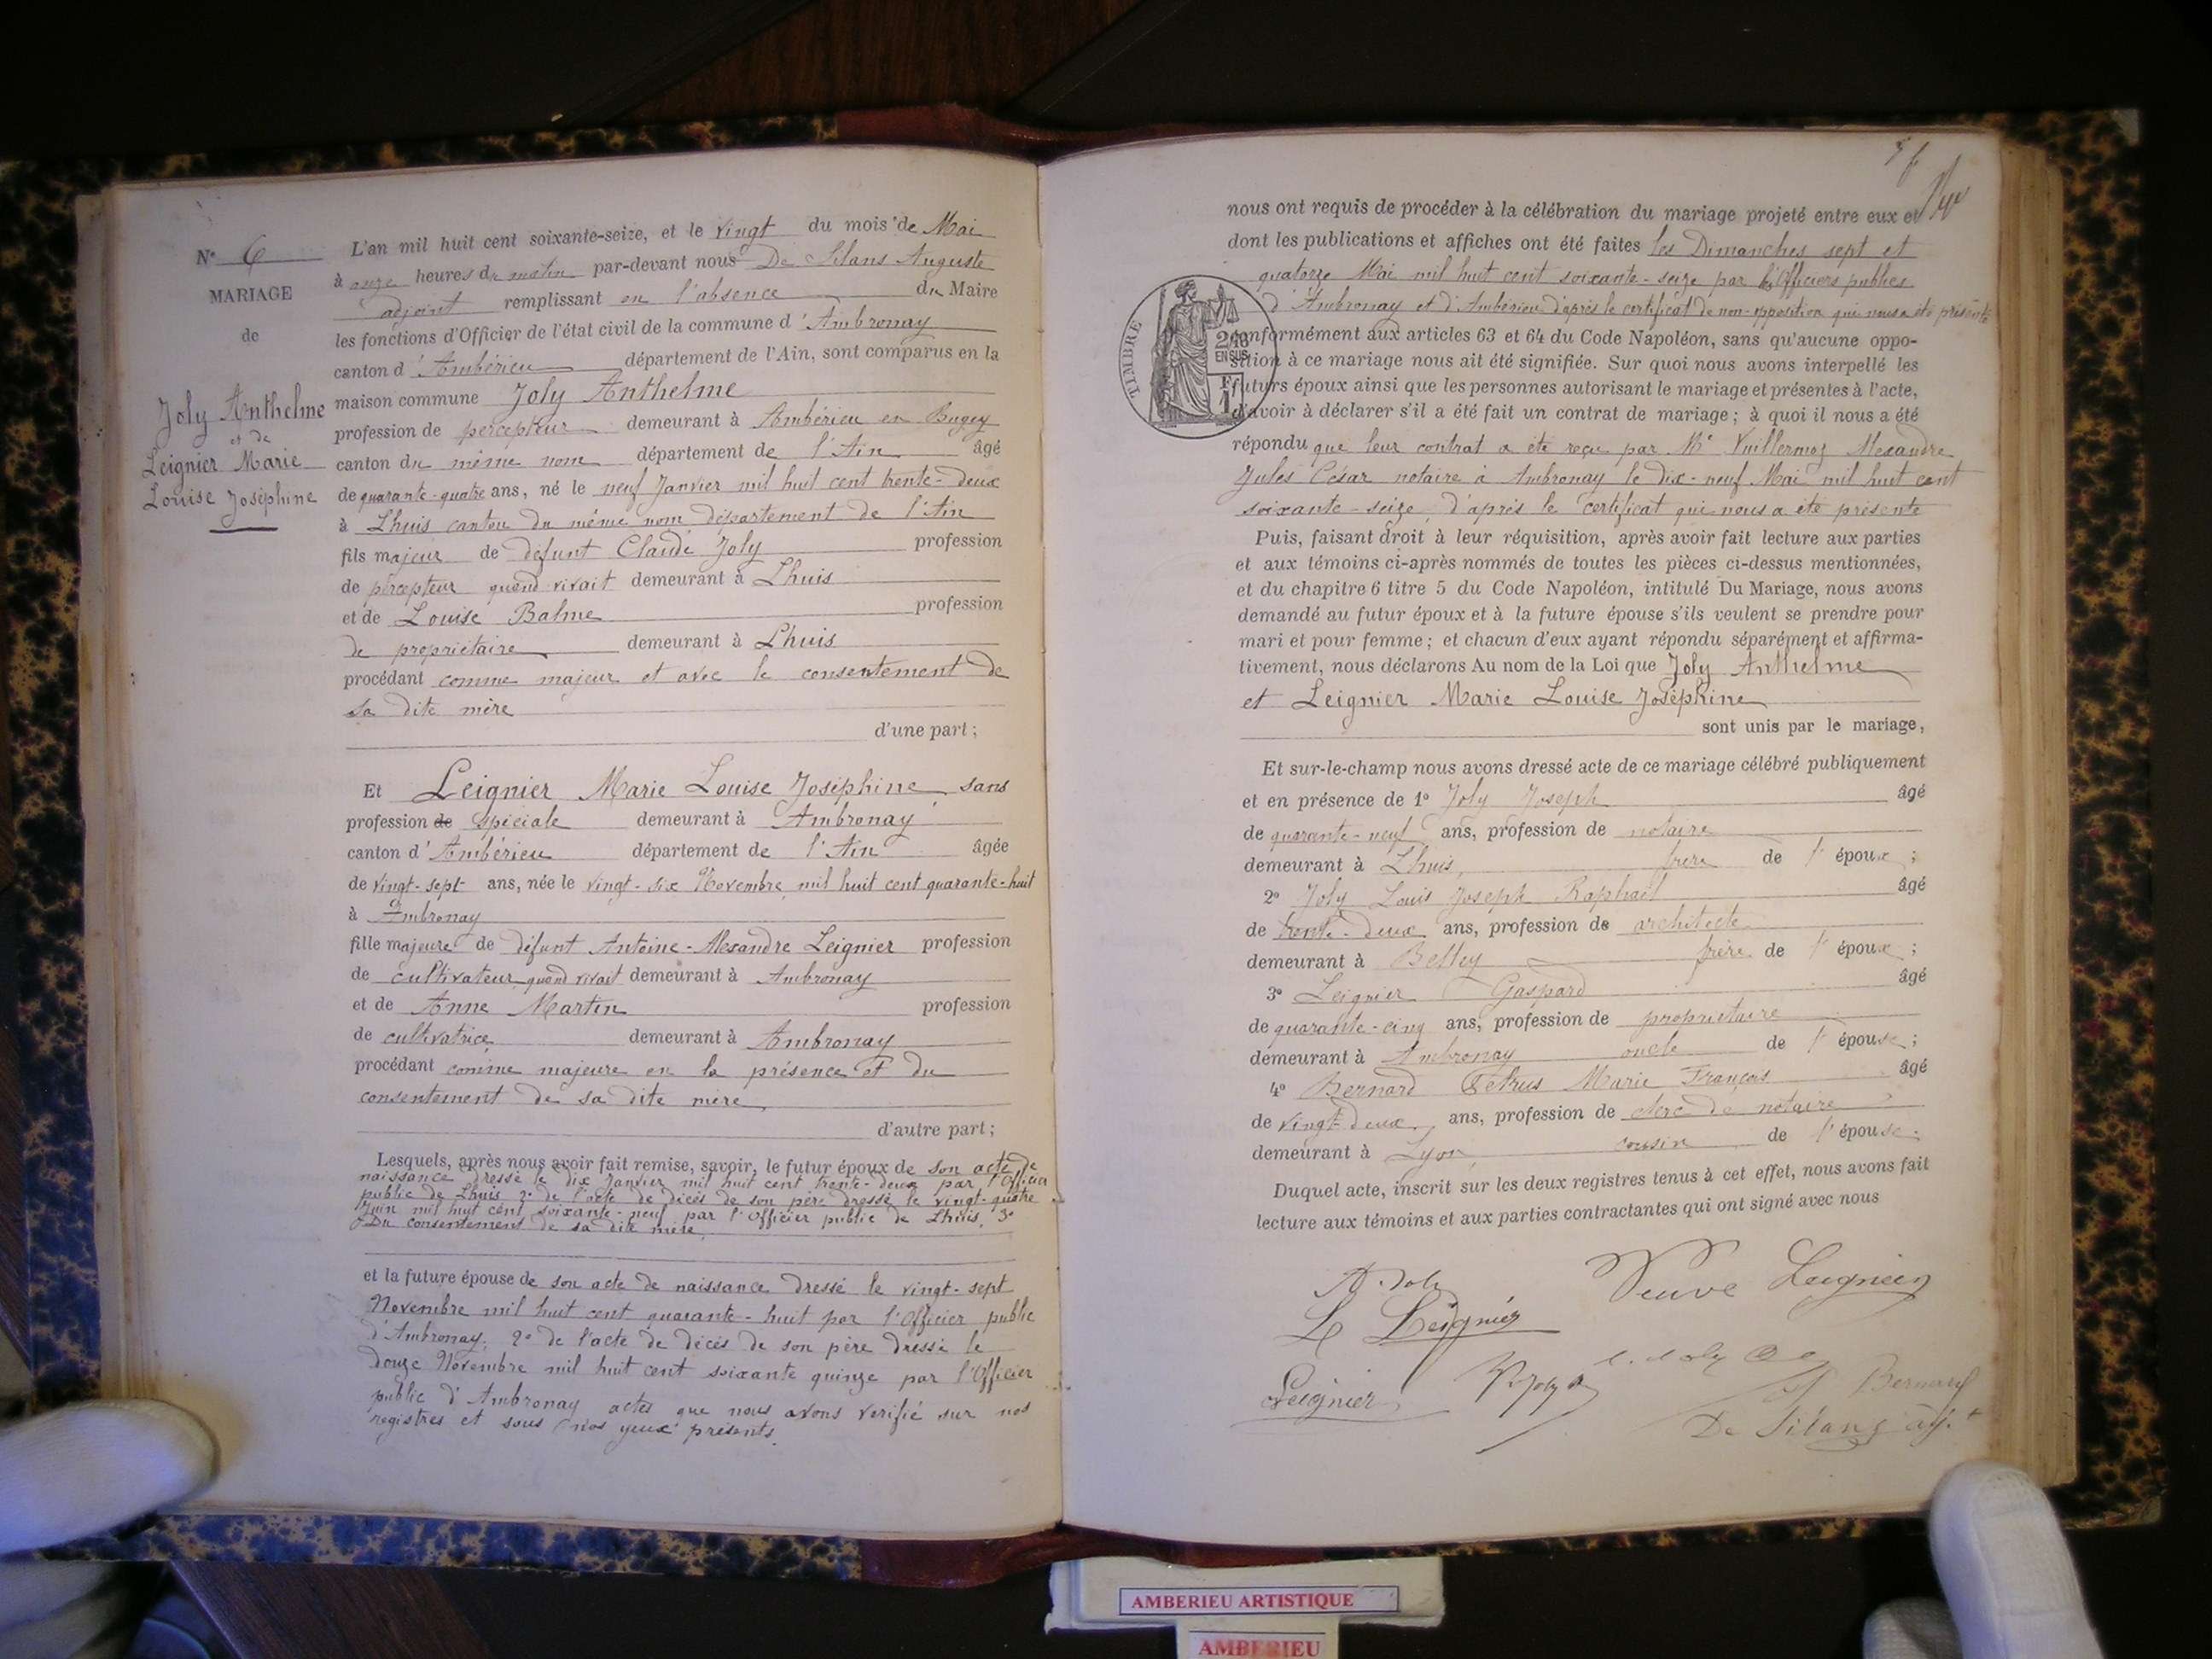 N° 6
MARIAGE
de
Joly Anthelme
et de
Leignier Marie
Louise Joséphine
L'an mil huit cent soixante-seize, et le vingt du mois de Mai
à onze heures du matin par-devant nous De Silans Auguste
adjoint remplissant en l'absence du Maire
les fonctions d'Officier de l'état civil de la commune d'Ambronay
canton d'Ambérieu département de l'Ain, sont comparus en la
maison commune Joly Anthelme
profession de percepteur demeurant à Ambérieu en Bugey
canton du même nom département de l'Ain âgé
de quarante-quatre ans, né le neuf Janvier mil huit cent trente-deux
à Lhuis canton du même nom département de l'Ain
fils majeur de défunt Claude Joly profession
de percepteur quand vivait demeurant à Lhuis
et de Louise Balme profession
de propriétaire demeurant à Lhuis
procédant comme majeur et avec le consentement de
sa dite mère
d'une part;
Et Leignier Marie Louise Joséphine, sans
profession de spéciale demeurant à Ambronay
canton d'Ambérieu département de l'Ain âgée
de vingt-sept ans, née le vingt-six Novembre mil huit cent quarante-huit
à Ambronay
fille majeure de défunt Antoine-Alexandre Leignier profession
de cultivateur quand vivait demeurant à Ambronay
et de Anne Martin profession
de cultivatrice demeurant à Ambronay
procédant comme majeure en la présence et du
consentement de sa dite mère
d'autre part;
Lesquels, après nous avoir fait remise, savoir, le futur époux de son acte de
naissance dressé le dix Janvier mil huit cent trente-deux par l'Officier
public de Lhuis 2° de l'acte de décès de son père dressé le vingt-quatre
Juin mil huit cent soixante-neuf par l'Officier public de Lhuis, 3°
Du consentement de sa dite mère
et la future épouse de son acte de naissance dressé le vingt-sept
Novembre mil huit cent quarante-huit par l'Officier public
d'Ambronay, 2° de l'acte de décès de son père dressé le
douze Novembre mil huit cent soixante quinze par l'Officier
public d'Ambronay actes que nous avons vérifié sur nos
registres et sous nos yeux présents.
nous ont requis de procéder à la célébration du mariage projeté entre eux et
dont les publications et affiches ont été faites les Dimanches sept et
quatorze Mai mil huit cent soixante-seize par les Officiers publics
d'Ambronay et d'Ambérieu d'après le certificat de non-opposition qui nous a été présenté
TIMBRE
EN SUS
conformément aux articles 63 et 64 du Code Napoléon, sans qu'aucune oppo-
sition à ce mariage nous ait été signifiée. Sur quoi nous avons interpellé les
futurs époux ainsi que les personnes autorisant le mariage et présentes à l'acte,
d'avoir à déclarer s'il a été fait un contrat de mariage; à quoi il nous a été
répondu que leur contrat a été reçu par Me Vuillermoz Alexandre
Jules César notaire à Ambronay le dix-neuf Mai mil huit cent
soixante-seize, d'après le certificat qui nous a été présenté
Puis, faisant droit à leur réquisition, après avoir fait lecture aux parties
et aux témoins ci-après nommés de toutes les pièces ci-dessus mentionnées,
et du chapitre 6 titre 5 du Code Napoléon, intitulé Du Mariage, nous avons
demandé au futur époux et à la future épouse s'ils veulent se prendre pour
mari et pour femme; et chacun d'eux ayant répondu séparément et affirma-
tivement, nous déclarons Au nom de la Loi que Joly Anthelme
et Leignier Marie Louise Joséphine
sont unis par le mariage,
Et sur-le-champ nous avons dressé acte de ce mariage célébré publiquement
et en présence de 1° Joly Joseph âgé
de quarante-neuf ans, profession de notaire
demeurant à Lhuis, frère de l'époux;
2° Joly Louis Joseph Raphaël âgé
de trente-deux ans, profession de architecte
demeurant à Belley frère de l'époux;
3° Leignier Gaspard âgé
de quarante-cinq ans, profession de propriétaire
demeurant à Ambronay oncle de l'épouse;
4° Bernard Petrus Marie François âgé
de vingt-deux, ans, profession de clerc de notaire
demeurant à Lyon cousin de l'épouse.
Duquel acte, inscrit sur les deux registres tenus à cet effet, nous avons fait
lecture aux témoins et aux parties contractantes qui ont signé avec nous
A. Joly
Veuve Leignier
L Leignier
Leignier
Bernard
De Silans adj.t
AMBERIEU ARTISTIQUE
AMBERIEU